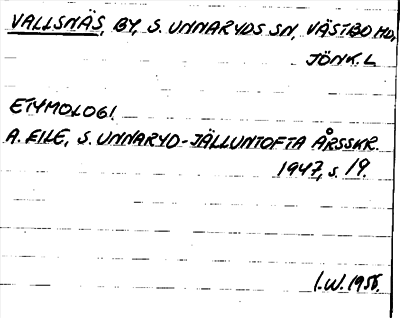 VALLSNÄS, BY, S. UNNARYDS SN, VÄSTBO HD,
JÖNK. L
ETYMOLOGI.
A. EILE, S. UNNARYD-JÄLLUNTOFTA ÅRSSKR.
1947, s. 19.
I.W. 1956.